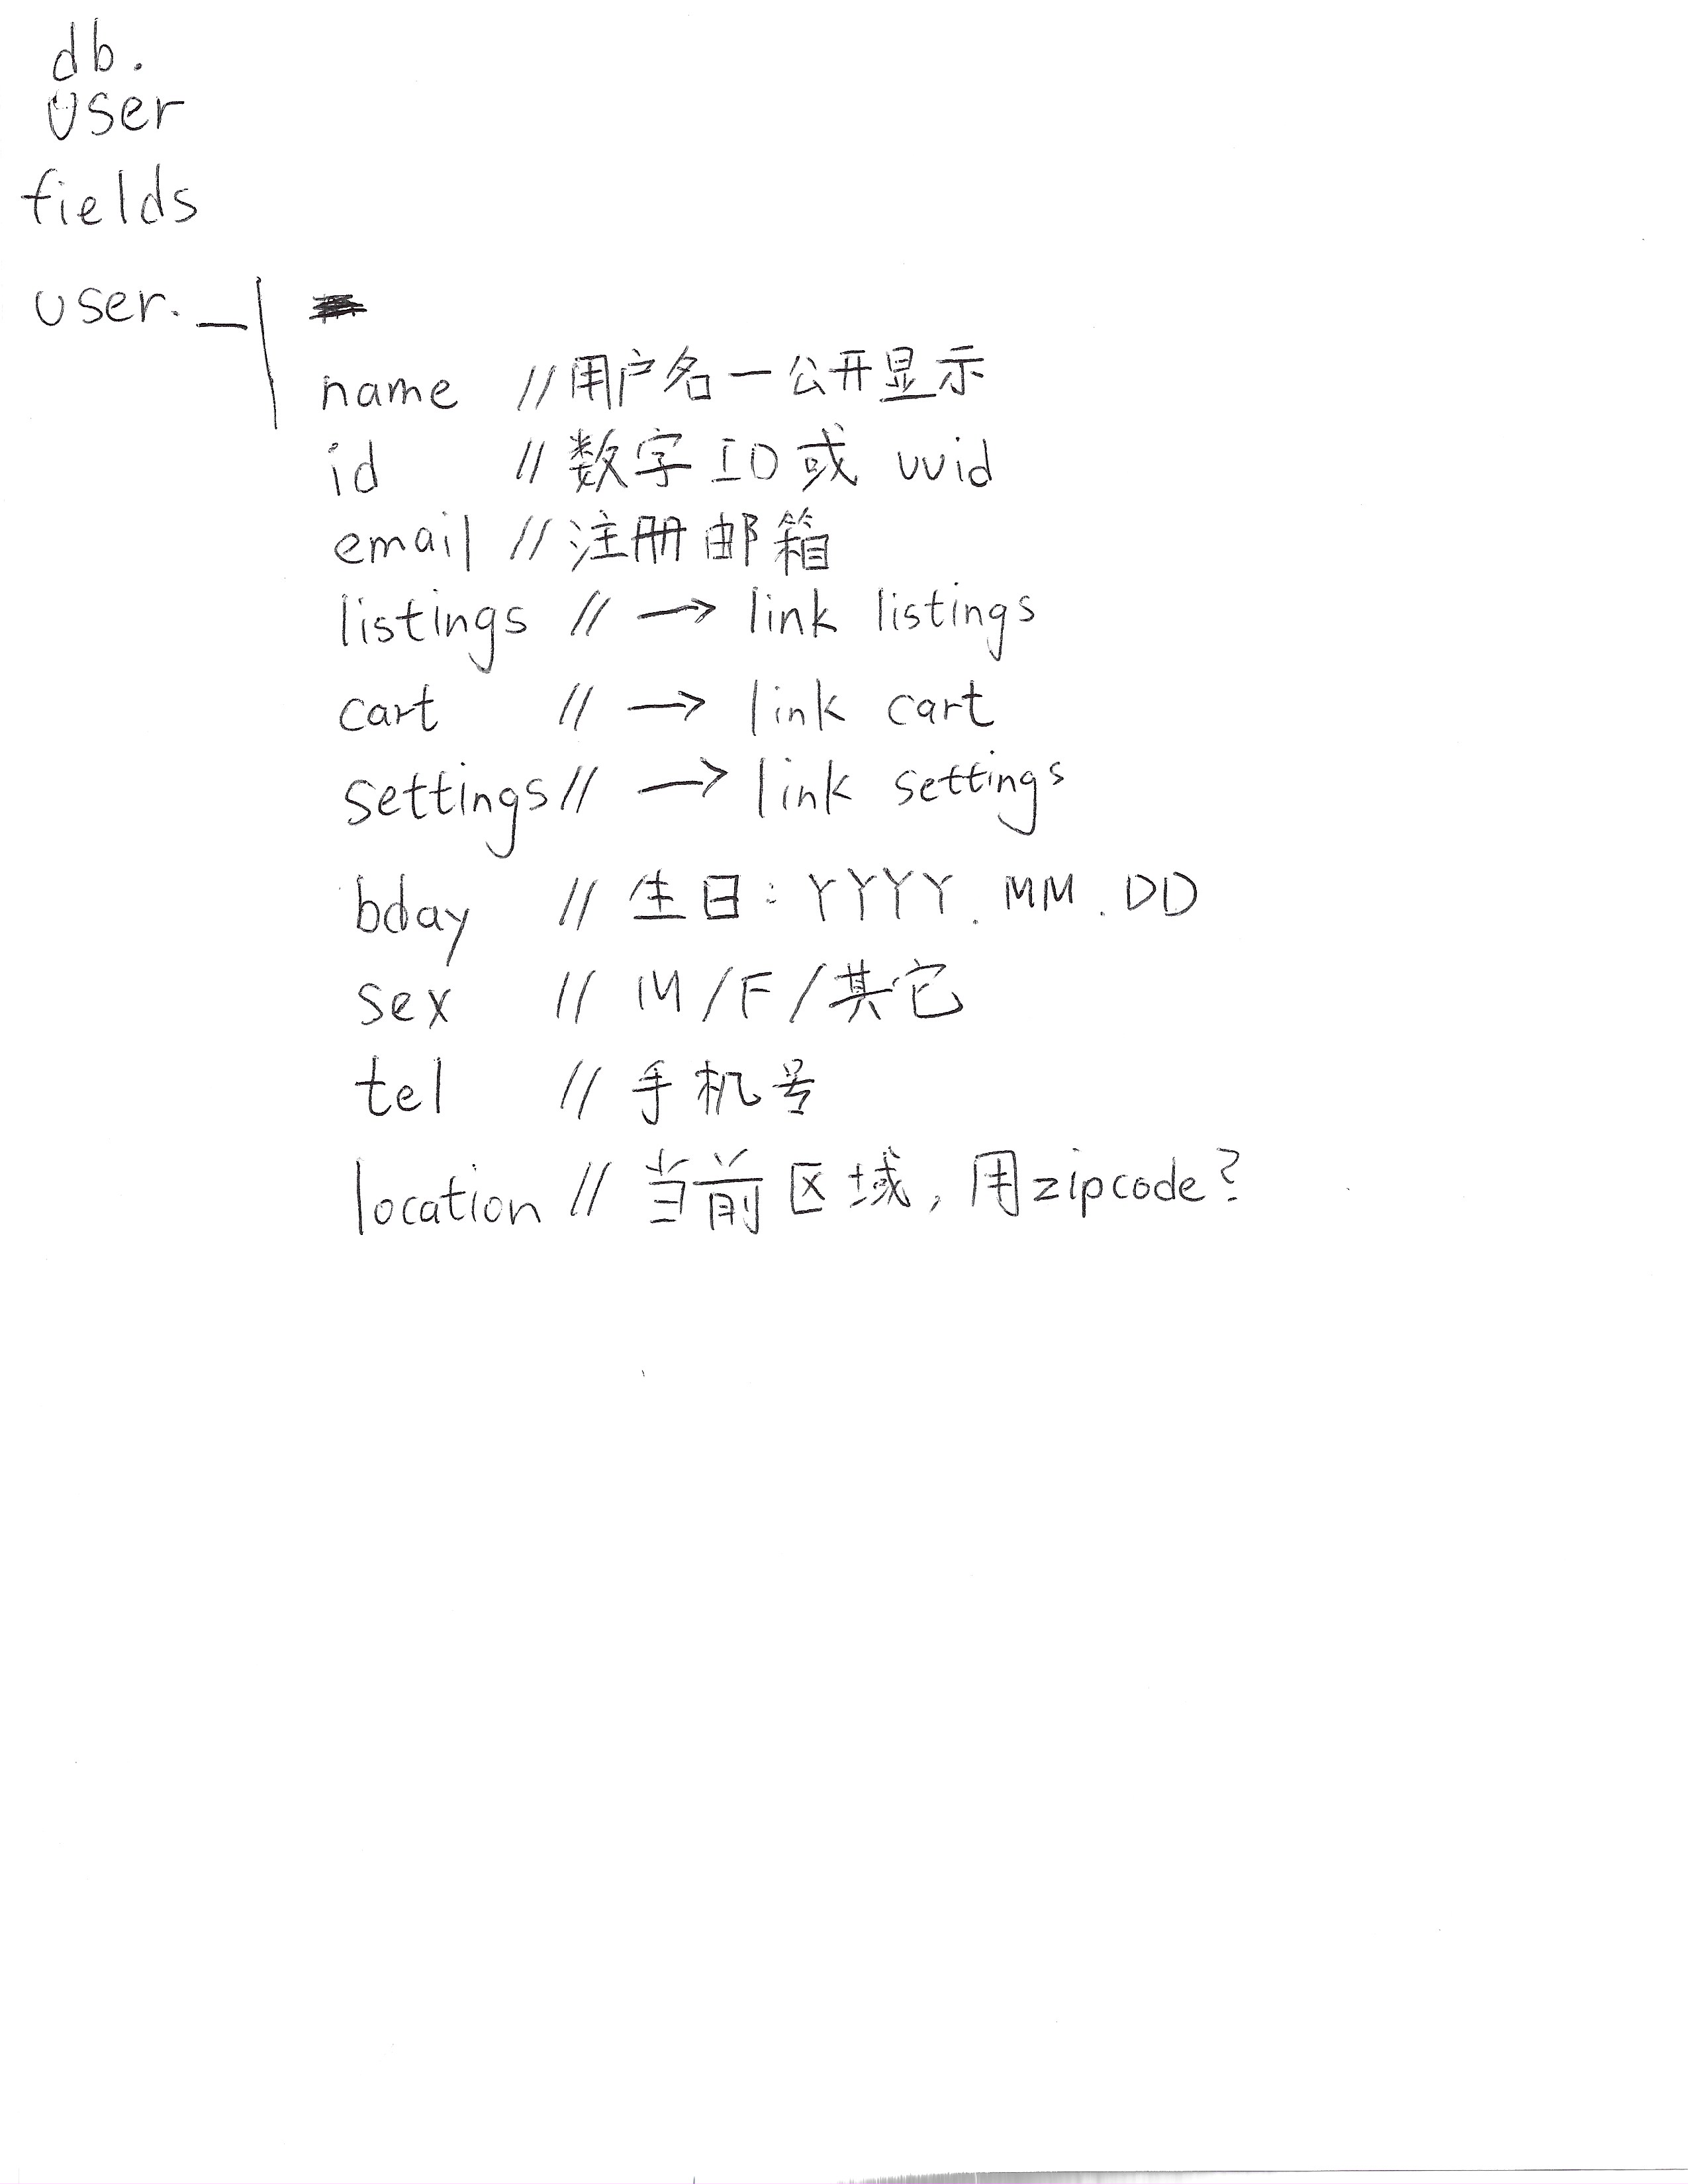 db.
User
fields
user. _|
name // 用户名 — 公开显示
id // 数字 ID 或 uuid
email // 注册邮箱
listings // → link listings
cart // → link cart
settings // → link settings
bday // 生日: YYYY.MM.DD
sex // M/F/其它
tel // 手机号
location // 当前区域, 用zipcode?